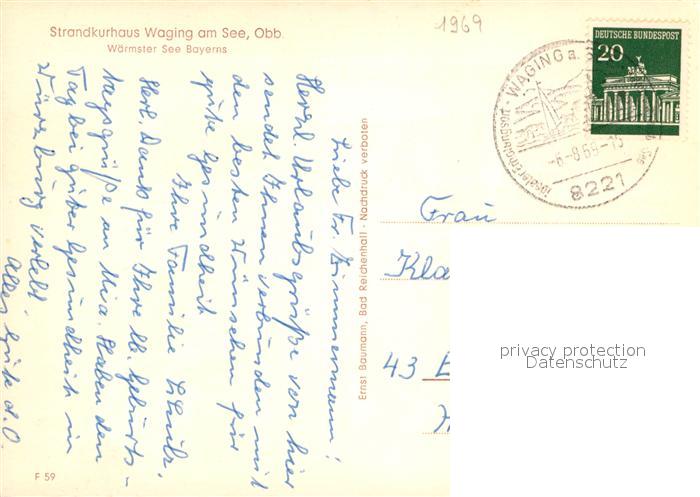 Strandkurhaus Waging am See, Obb.
Wärmster See Bayerns
1969
DEUTSCHE BUNDESPOST
20
WAGING a. S
-6-8.69-15
8221
Liebe Fr. Zimmermann!
Herzl. Urlaubsgrüße von hier
sendet Ihnen verbunden mit
den besten Wünschen für
gute Gesundheit
Ihre Familie Schulz.
Herl. Dank für Ihre lb. Geburts-
tagsgrüße an Mia. Haben den
Tag bei guter Gesundheit in
Würzburg verlebt.
Alles Gute d. O.
Ernst Baumann, Bad Reichenhall · Nachdruck verboten
Frau
Kla
43 E
F 59
privacy protection
Datenschutz